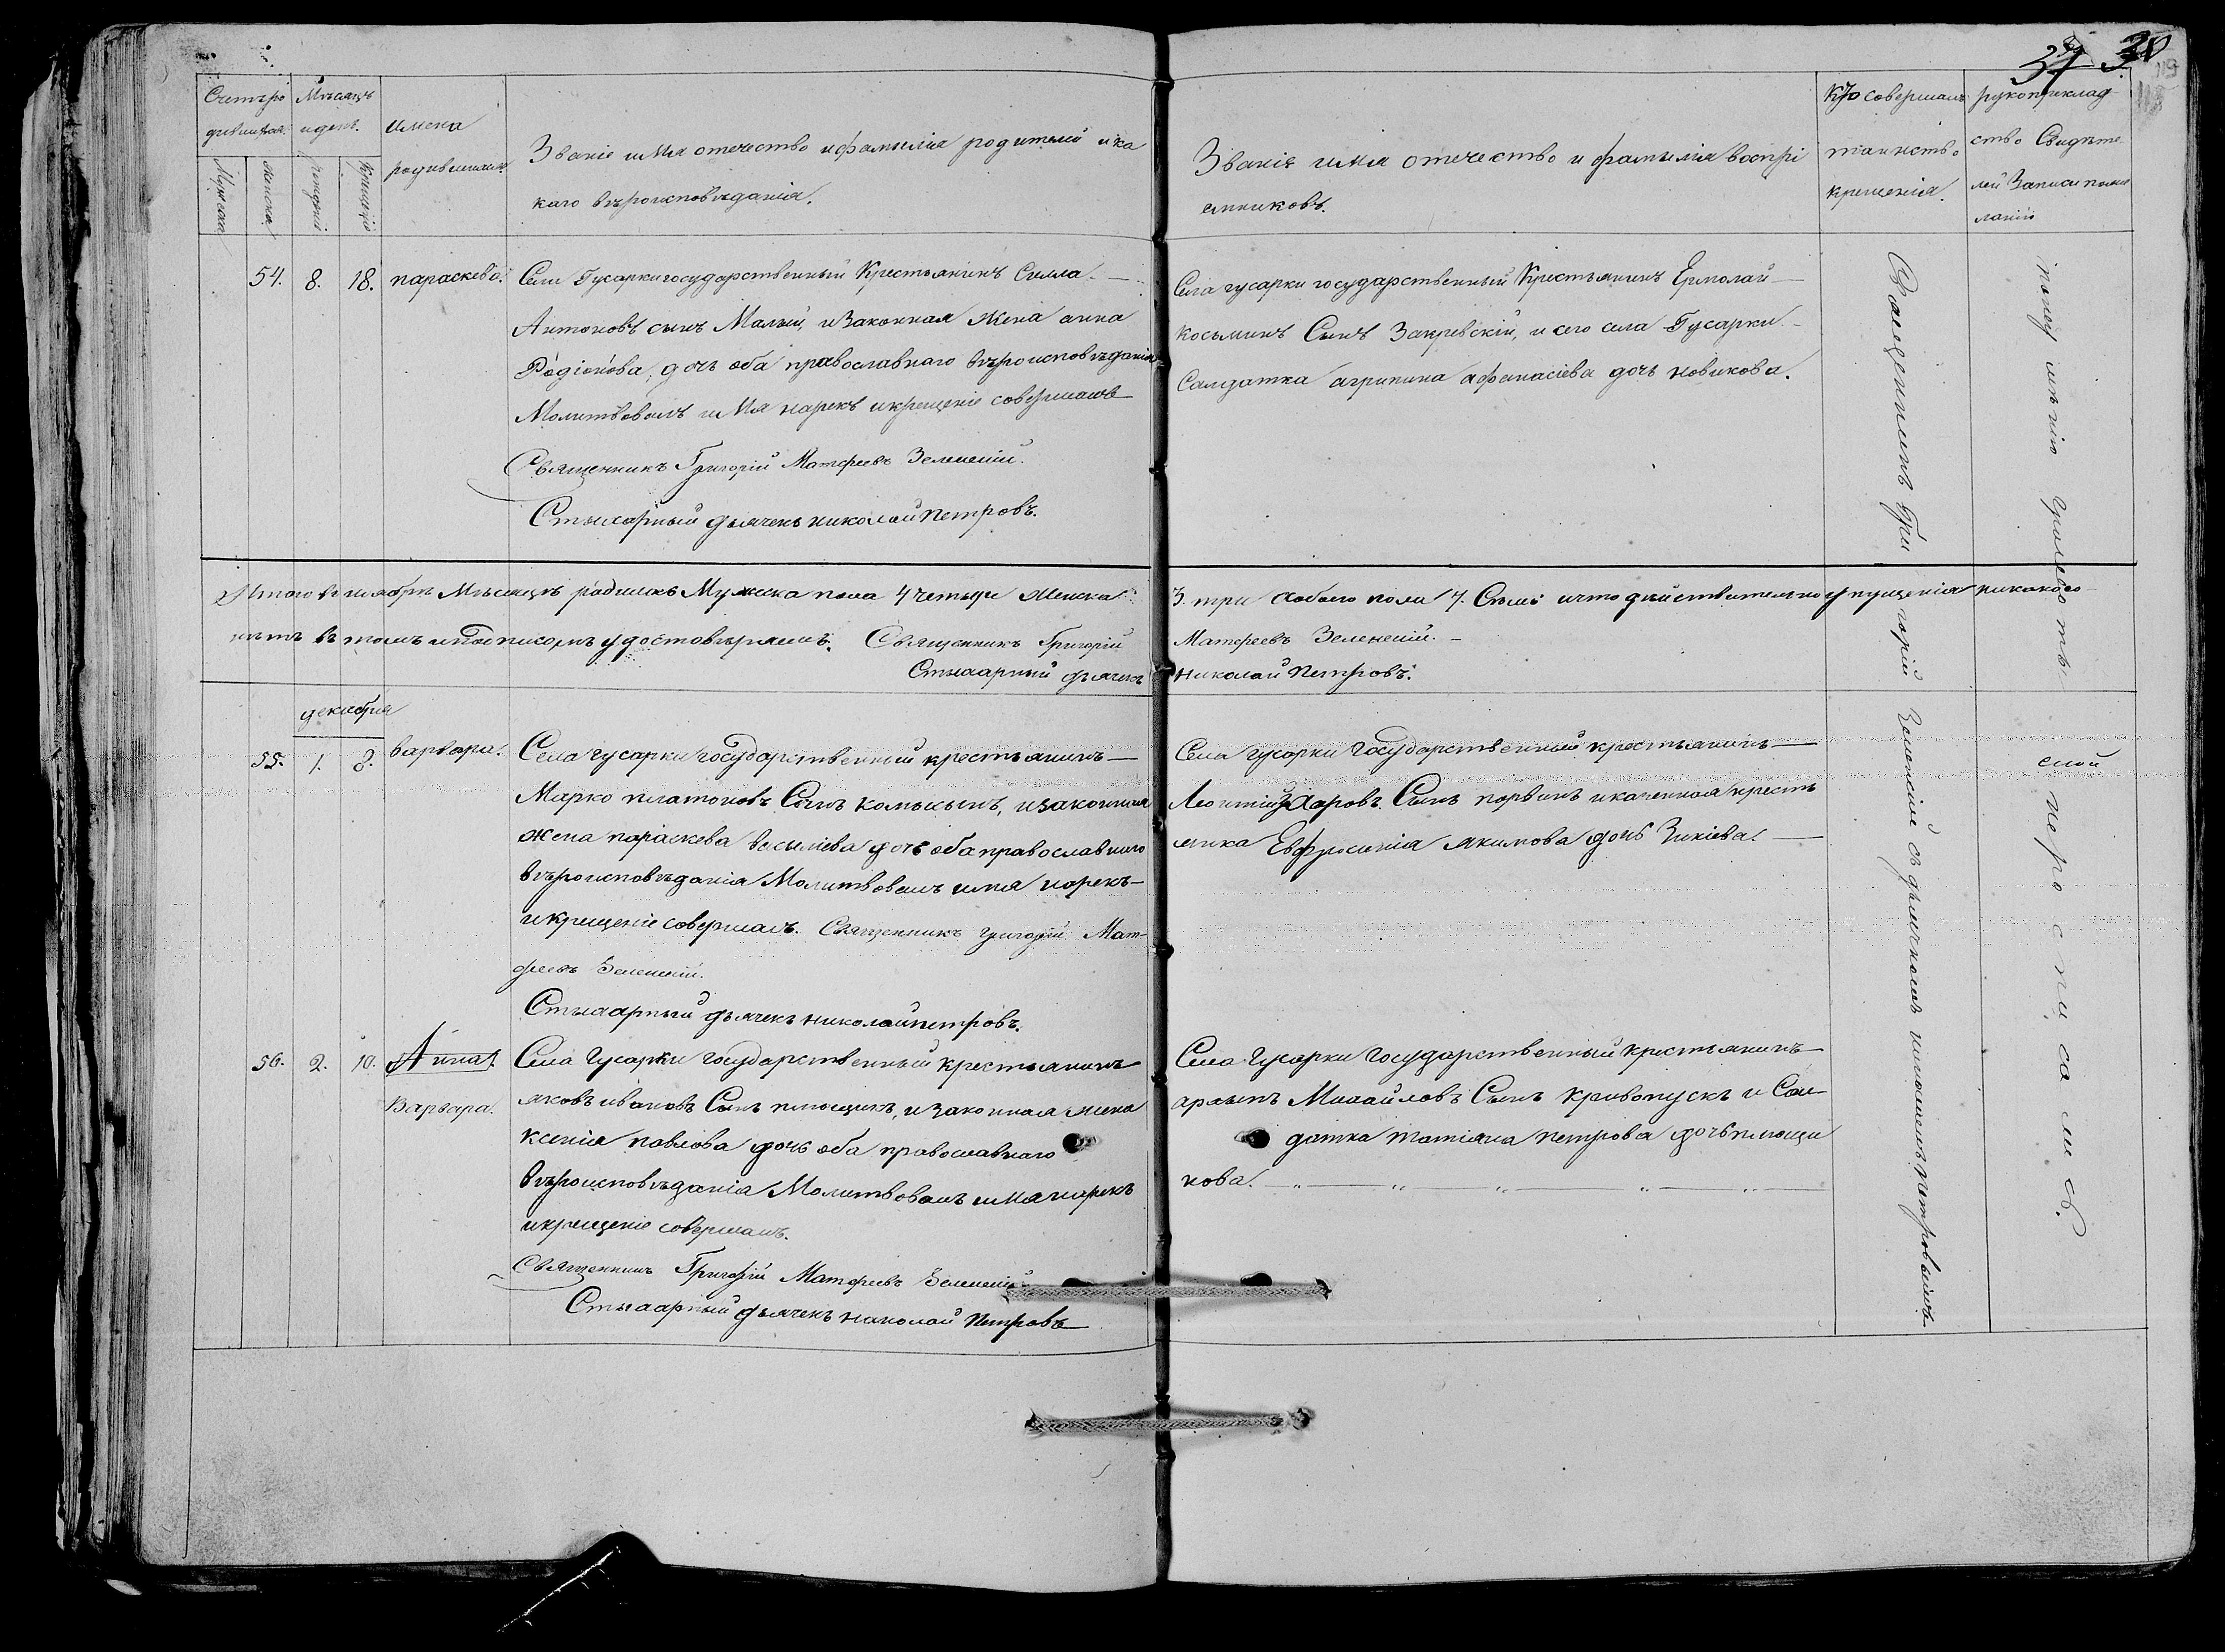 37 38
119
118
Счетъ ро
дившихся.
Мѣсяцъ
и день.
Имена
родившихся
Мужска
женска.
рожденія
Крещенія
Званіе имя отечество и фамилія родителей и ка
каго вѣроисповѣданія.
Званіе имя отечество и фамилія воспрі
емниковъ.
Кто совершалъ
таинство
крещенія.
рукоприклад
ство Свидѣте
лей Записи по же
ланію
54. 8. 18. параскева.
Села Гусарки государственный Крестьянинъ Силла
Антоновъ сынъ Малый, и Законная Жена анна
Родіонова, дочь оба православнаго вѣроисповѣданія
Молитвовалъ имя нарекъ и крещеніе совершалъ
Священникъ Григорій Матфеевъ Зеленскій.
Стихарный дьячекъ николай петровъ.
Села гусарки государственный Крестьянинъ Ермолай
косьминъ Сынъ Закревскій, и сего села Гусарки
Салдатка агрипина афанасіева дочь новикова.
Итого въ ноябрѣ Мѣсяцѣ родилось Мужска пола 4 четыре женска
3. три а обоего пола 7. Семь и что действительно упущенія никакого
нѣтъ въ томъ и подписомъ удостовѣряемъ. Священникъ Григорій
Матфеевъ Зеленскій.
Стихарный дьячекъ
Николай Петровъ.
декабря
55. 1. 8. варвара.
Села гусарки государственный крестьянинъ
Марко платоновъ Сынъ , и законная
жена параскева василіева дочь оба православнаго
вѣроисповѣданія Молитвовалъ имя нарекъ
и крещеніе совершалъ. Священникъ григорій Мат-
феевъ Зеленскій.
Стихарный дьячекъ николай петровъ.
Села гусарки государственный крестьянинъ
Леонтій Сынъ и казенная кресть
янка Евфросинія якимова дочь
56. 2. 10. Анна.
Варвара.
Села гусарки государственный крестьянинъ
яковъ ивановъ Сынъ плющикъ, и законная жена
ксенія павлова дочь оба православнаго
вѣроисповѣданія Молитвовалъ имя нарекъ
и крещеніе совершалъ.
Священникъ Григорій Матфеевъ Зеленскій
Стихарный дьячекъ николай Петровъ
Села гусарки государственный крестьянинъ
Михайловъ Сынъ кривопускъ и Сал-
датка татіана петрова дочь плющи
кова.
Священникъ Григорій Зеленскій съ дьячкомъ николаемъ петровымъ